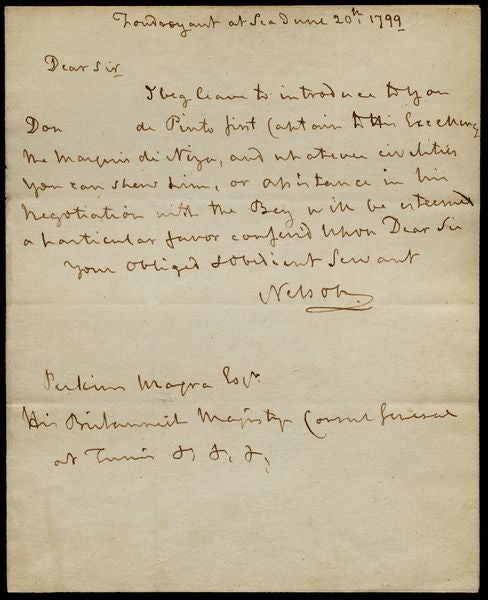 Foudroyant at Sea June 20th 1799
Dear Sir
I beg leave to introduce to you
Don de Pinto first Captain to His Excellency
the Marquis de Niza, and whatever civilities
you can shew him, or assistance in his
Negotiation with the Bey will be esteemed
a particular favor confer'd upon Dear Sir
your obliged & obedient Servant
Nelson
Perkins Magra Esqr.
His Britannick Majestys Consul General
at Tunis &c &c &c